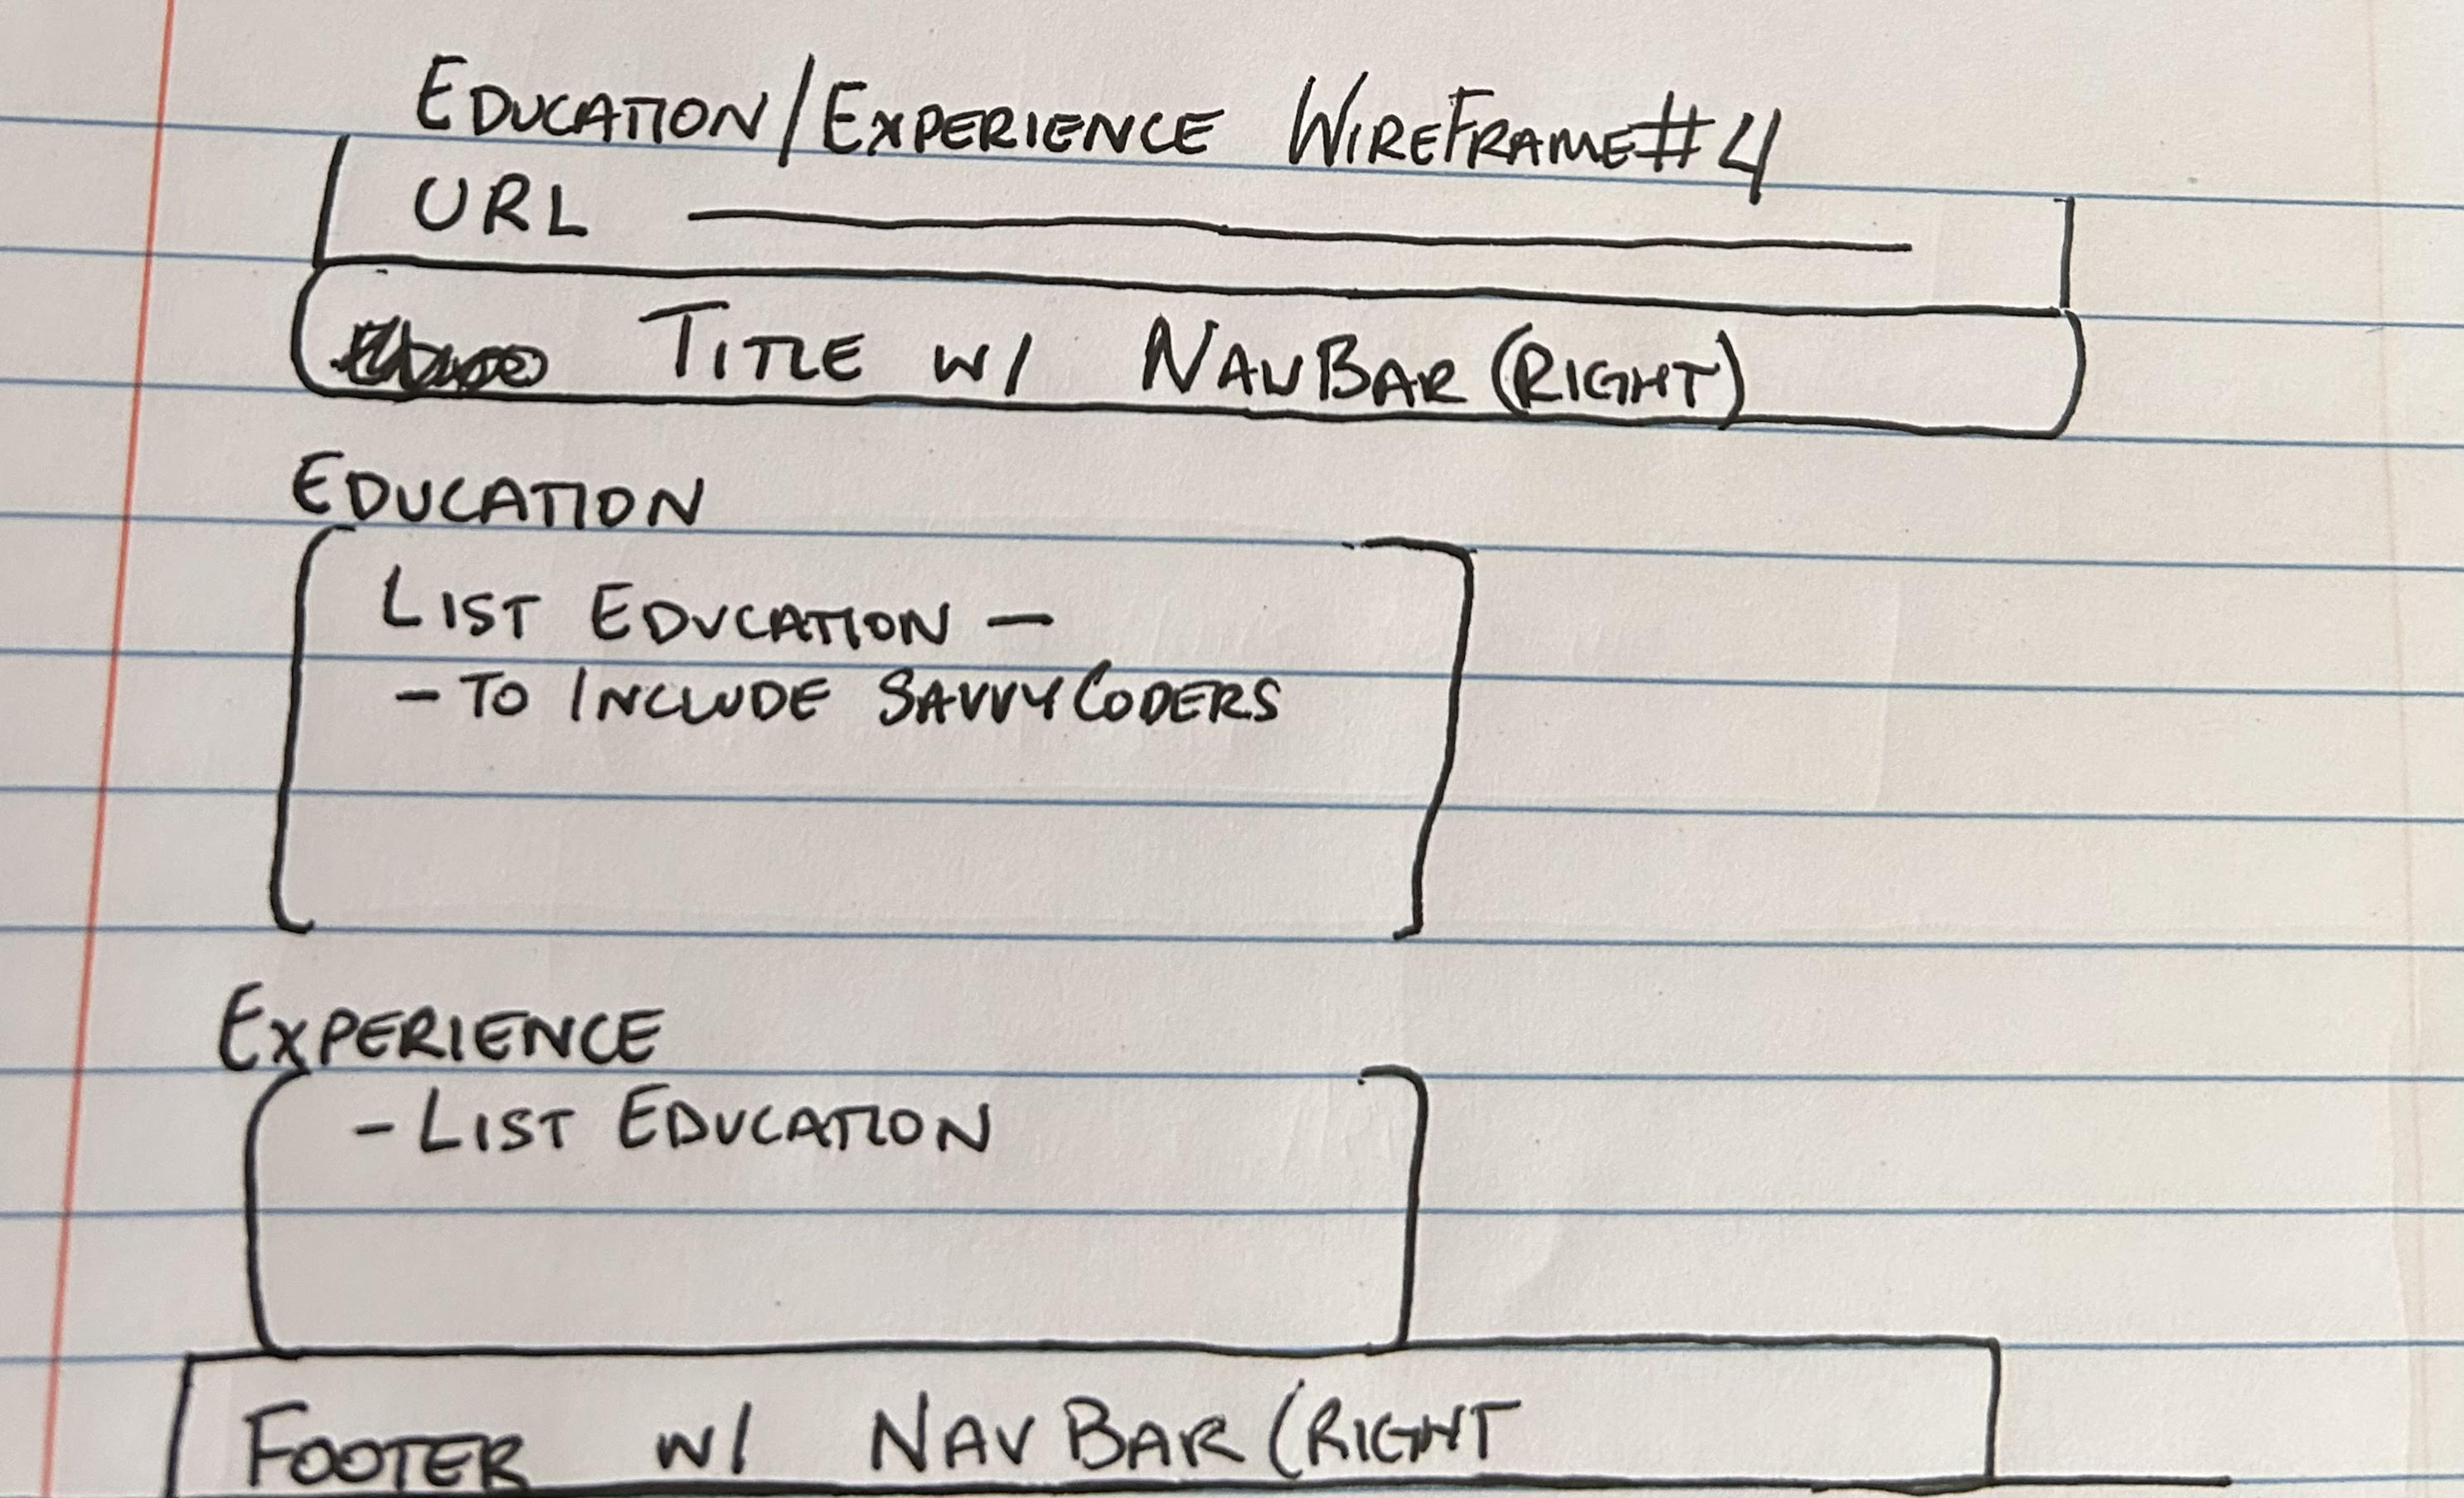 EDUCATION/EXPERIENCE WIREFRAME#4
URL
TITLE W/ NAVBAR (RIGHT)
EDUCATION
LIST EDUCATION -
- TO INCLUDE SAVVYCODERS
EXPERIENCE
- LIST EDUCATION
FOOTER W/ NAV BAR (RIGHT